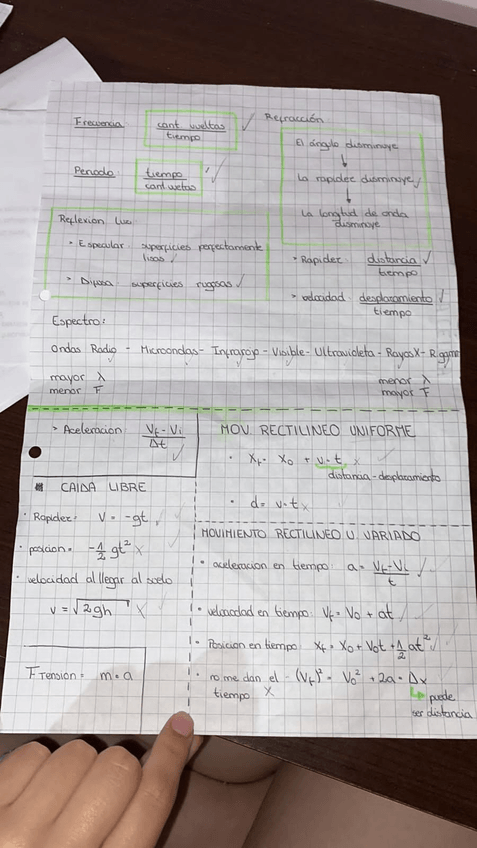 Frecuencia: cant vueltas / tiempo ✓
Periodo: tiempo / cant vueltas ✓
Refracción
El ángulo disminuye
↓
La rapidez disminuye ✓
↓
La longitud de onda
disminuye
Reflexion Luz:
• Especular: superficies perfectamente
lisas ✓
> Difusa: superficies rugosas ✓
• Rapidez: distancia / tiempo ✓
> velocidad: desplazamiento / tiempo ✓
Espectro:
Ondas Radio - Microondas - Infrarojo - Visible - Ultravioleta - Rayos X - R. gamma
mayor λ
menor F
menor λ
mayor F
> Aceleracion: Vf - Vi / Δt ✓
CAIDA LIBRE
• Rapidez: V = -gt ✓
• posicion = -1/2 gt² X
• velocidad al llegar al suelo
v = √2gh X
F Tension = m • a
MOV. RECTILINEO UNIFORME
• Xf = X0 + v·t X
distancia - desplazamiento
• d = v·t X
MOVIMIENTO RECTILINEO U. VARIADO
• aceleracion en tiempo: a = Vf - Vi / t ✓
• velocidad en tiempo: Vf = V0 + at ✓
• Posicion en tiempo: Xf = X0 + V0t + 1/2 at² ✓
• no me dan el tiempo X - (Vf)² = V0² + 2a • Δx
↳ puede
ser distancia